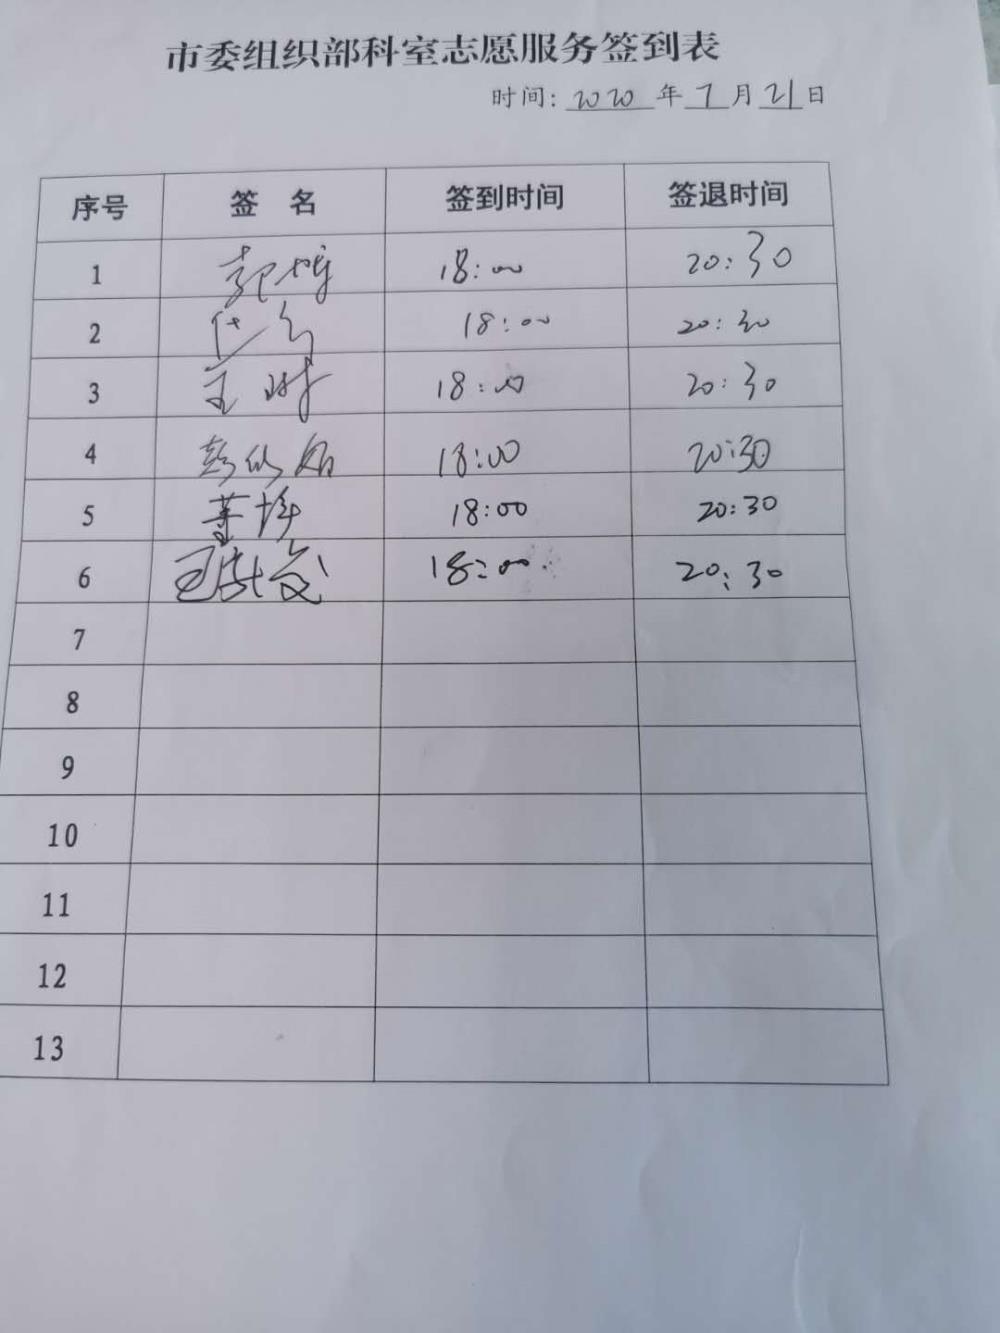 市委组织部科室志愿服务签到表
时间: 2020 年 7 月 21 日
序号 签 名 签到时间 签退时间
1 18:00 20:30
2 18:00 20:30
3 王 18:00 20:30
4 彭 18:00 20:30
5 董 18:00 20:30
6 王 18:00 20:30
7
8
9
10
11
12
13